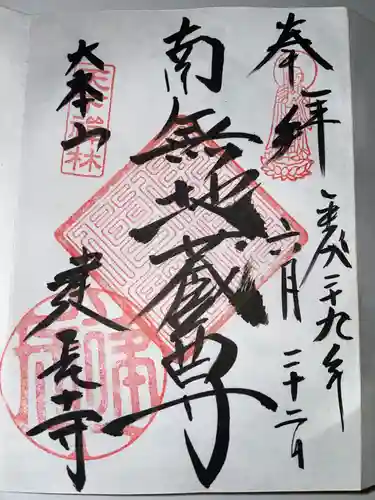 奉拝
平成二十九年
六月二十二日
南無地蔵尊
大本山
建長寺